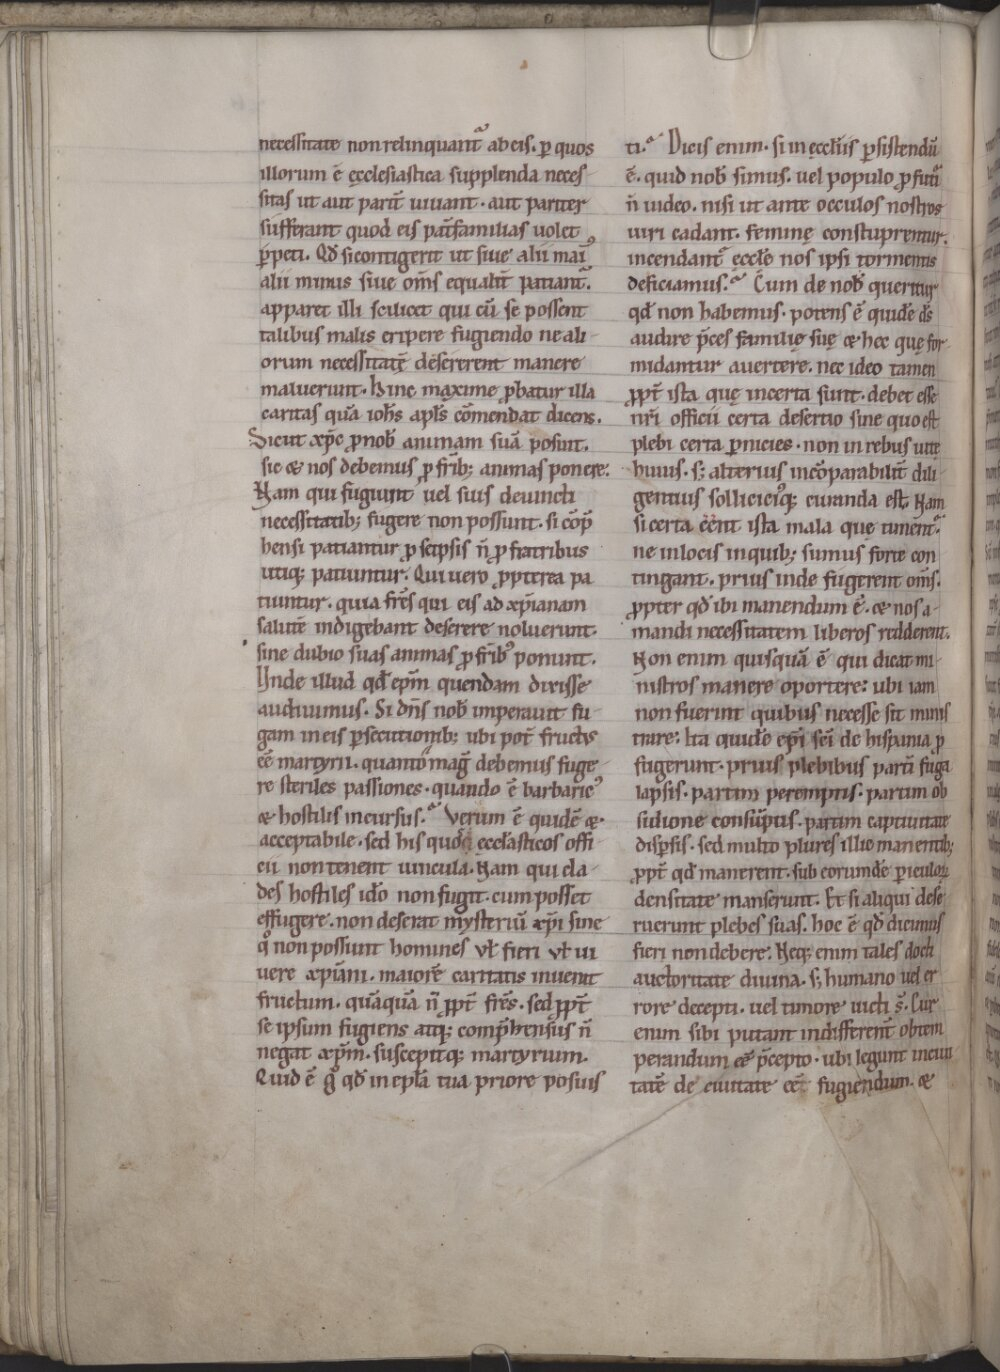 necessitate non relinquant᷑ ab eis. ꝑ quos
illorum ē ęcclesiastica supplenda neces-
sitas ut aut parit̄ uiuant. aut pariter
sufferant quod eis pat̄familias uolet
ꝑpeti. Qđ si contigerit ut siue alii mai᷒
alii minus siue om̄s equalit̄ patiant᷑.
apparet illi scilicet qui cū se possent
talibus malis eripere fugiendo ne ali-
orum necessitatē desererent manere
maluerunt. Hinc maxime ꝓbatur illa
caritas quā ioh̄s apl̄s cōmendat dicens.
Sicut xp̄c ꝓ nob̄ animam suā posuit.
sic & nos debemus ꝓ fr̄ib; animas ponere.
Nam qui fugiunt uel suis deuincti
necessitatib; fugere non possunt. si cōp̄
hensi patiantur ꝓ seipsis n̄ ꝓ fratribus
utiq; patiuntur. Qui uero ꝓpterea pa
tiuntur. quia fr̄es qui eis ad xp̄ianam
salutē indigebant deserere noluerunt.
sine dubio suas animas ꝓ fr̄ib᷒ ponunt.
Unde illud qđ ep̄m quendam dixisse
audiuimus. Si dn̄s nob̄ imperauit fu-
gam in eis ꝑsecutionib; ubi pot̄ fruct᷒
eē martyrii. quantomaḡ debemus fuge-
re steriles passiones. quando ē barbaric᷒
& hostilis incursus.᷑ Verum ē quidē &
acceptabile. sed his quos eccl̄asticos offi-
cii non tenent uincula. Nam qui cla-
des hostiles id̄o non fugit. cum posset
effugere. non deserat mysteriū xp̄i sine
qͦ non possunt homines ul̄ fieri ul̄ ui
uere xp̄iani. maiorē caritatis inuenit
fructum. quāquā n̄ ꝓpt̄ fr̄es. sed ꝓpt̄
se ipsum fugiens atq; comp̄hensus n̄
negat xp̄m. suscepitq; martyrium.
Quid ē gͦ qđ in epl̄a tua priore posuis
ti.᷑ Dicis enim. si in ęccl̄iis ꝑsistendū
ē. quid nob̄ simus. uel populo ꝓfuturi
n̄ uideo. nisi ut ante occulos nostros
uiri cadant. feminę constuprentur.
incendant᷑ ęccl̄e nos ipsi tormentis
deficiamus.᷑ Cum de nob̄ queritur
qđ non habemus. potens ē quidē ds̄
audire p̄ces familię suę & hec quę for-
midantur auertere. nec ideo tamen
ꝓpt̄ ista quę incerta sunt. debet esse
nr̄i officii certa desertio sine quo est
plebi certa ꝑnicies. non in rebus uitę
huius. s; alterius incōparabilit̄ dili-
gentius sollicici᷒q; curanda est. Nam
si certa eēnt ista mala quę timent᷑.
ne in locis in quib; sumus forte con
tingant. prius inde fugerent om̄s.
ꝓpter qđ ibi manendum ē. & nos a-
manendi necessitatem liberos redderent.
Non enim quisquā ē qui dicat mi-
nistros manere oportere. ubi iam
non fuerint quibus necesse sit minis
trare. Ita quidē ep̄i sc̄i de hispania ꝓ
fugerunt. prius plebibus partī fuga
lapsis. partim peremptis. partim ob
sidione consūptis. partim captiuitate
dispsis. sed multo plures illic manentib;
ꝓpt̄ qđ manerent. sub eorundē periculoꝝ
densitate manserunt. Et si aliqui dese
ruerunt plebes suas. hoc ē qđ dicimus
fieri non debere. Neq; enim tales docti
auctoritate diuina. s; humano uel er
rore decepti. uel timore uicti s̄. Cur
enim sibi putant indifferent̄ obtem
perandum eē p̄cepto. ubi legunt in ciui
tatē de ciuitate eē fugiendum. &